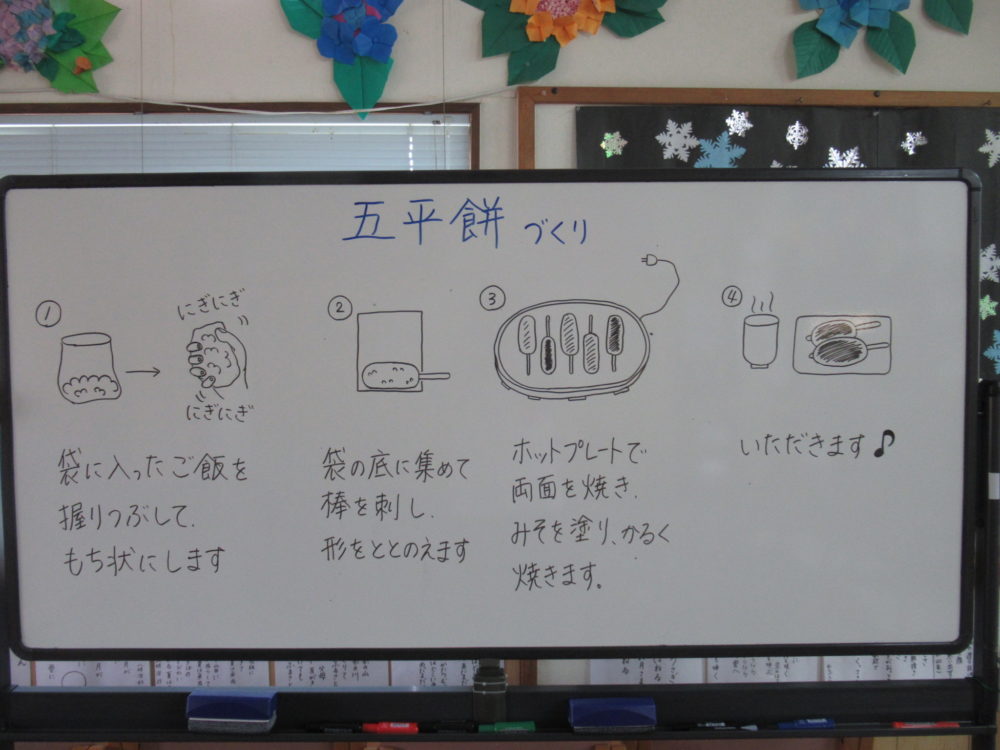 五平餅づくり
①
にぎにぎ
にぎにぎ
袋に入ったご飯を
握りつぶして、
もち状にします
②
袋の底に集めて
棒を刺し、
形をととのえます
③
ホットプレートで
両面を焼き、
みそを塗り、かるく
焼きます。
④
いただきます♪